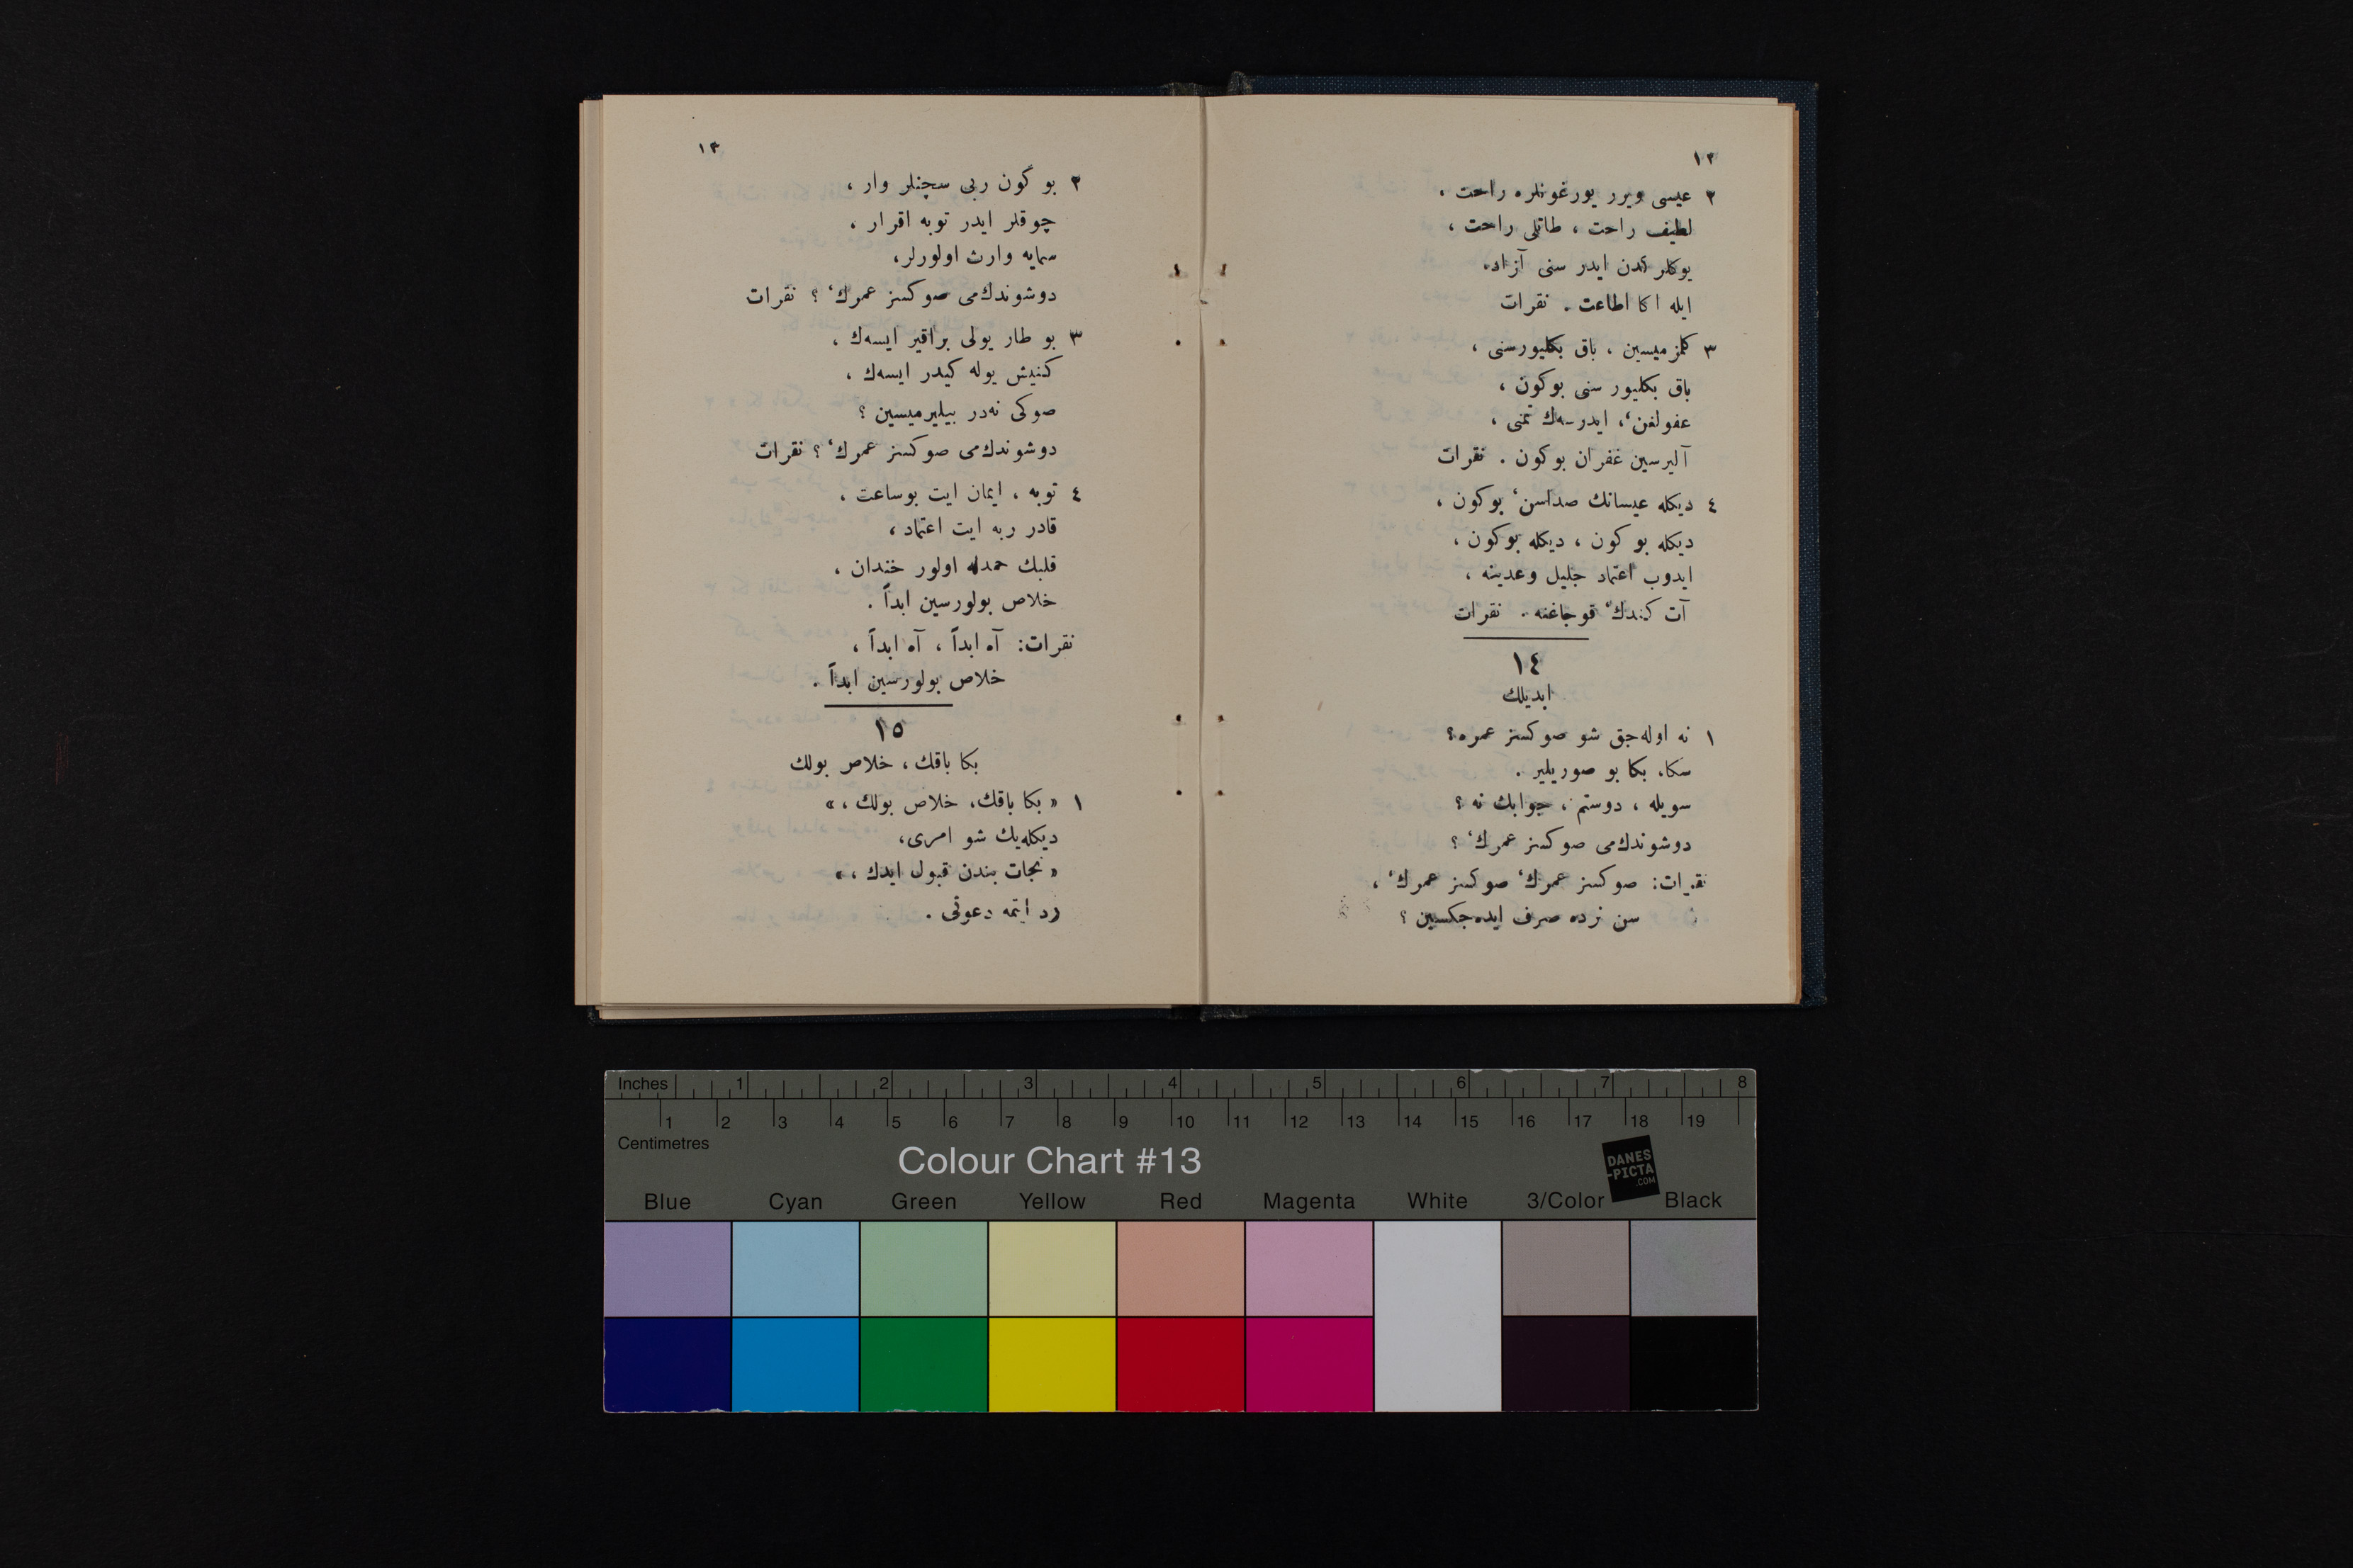 ١٢
٢ عیسی ویرر یورغونلره راحت ،
لطیف راحت ، طاتلی راحت ،
یوکلر کدن ایدر سنی آزاد،
ایله اکا اطاعت . نقرات
٣ کلمزمیسین ، باق بکلیورسنی ،
باق بکلیور سنی بوکون ،
عفولغن‘، ایدرسه‌ك تمنی ،
آلیرسین غفران بوکون . نقرات
٤ دیکله عیسانك صداسن‘ بوکون ،
دیکله بوکون ، دیکله بوکون ،
ایدوب اعتماد جلیل وعدینه ،
آت کندك‘ قوجاغنه . نقرات
١٤
ابدیلك
١ نه اوله‌جق شو صوکسز عمره؟
سکا، بکا بو صوریلیر .
سویله ، دوستم ، جوابك نه ؟
دوشوندك‌می صوکسز عمرك‘ ؟
نقرات: صوکسز عمرك‘ صوکسز عمرك‘ ،
سن نرده صرف ایده‌جکسین ؟
١٣
٢ بو گون ربی سچنلر وار ،
چوقلر ایدر توبه اقرار ،
سمایه وارث اولورلر،
دوشوندك‌می صوکسز عمرك‘ ؟ نقرات
٣ بو طار یولی براقیر ایسه‌ك ،
کنیش یوله کیدر ایسه‌ك ،
صوکی نه‌در بیلیرمیسین ؟
دوشوندك‌می صوکسز عمرك‘ ؟ نقرات
٤ توبه ، ایمان ایت بوساعت ،
قادر ربه ایت اعتماد ،
قلبك حمدله اولور خندان ،
خلاص بولورسین ابداً .
نقرات: آه ابداً ، آه ابداً ،
خلاص بولورسین ابداً .
١٥
بکا باقك ، خلاص بولك
١ « بکا باقك، خلاص بولك ،»
دیکله‌یك شو امری،
« نجات بندن قبول ایدك ،»
رد ایتمه دعوتی .
Inches 1 2 3 4 5 6 7 8
1 2 3 4 5 6 7 8 9 10 11 12 13 14 15 16 17 18 19
Centimetres
Colour Chart #13
DANES
-PICTA
.COM
Blue Cyan Green Yellow Red Magenta White 3/Color Black